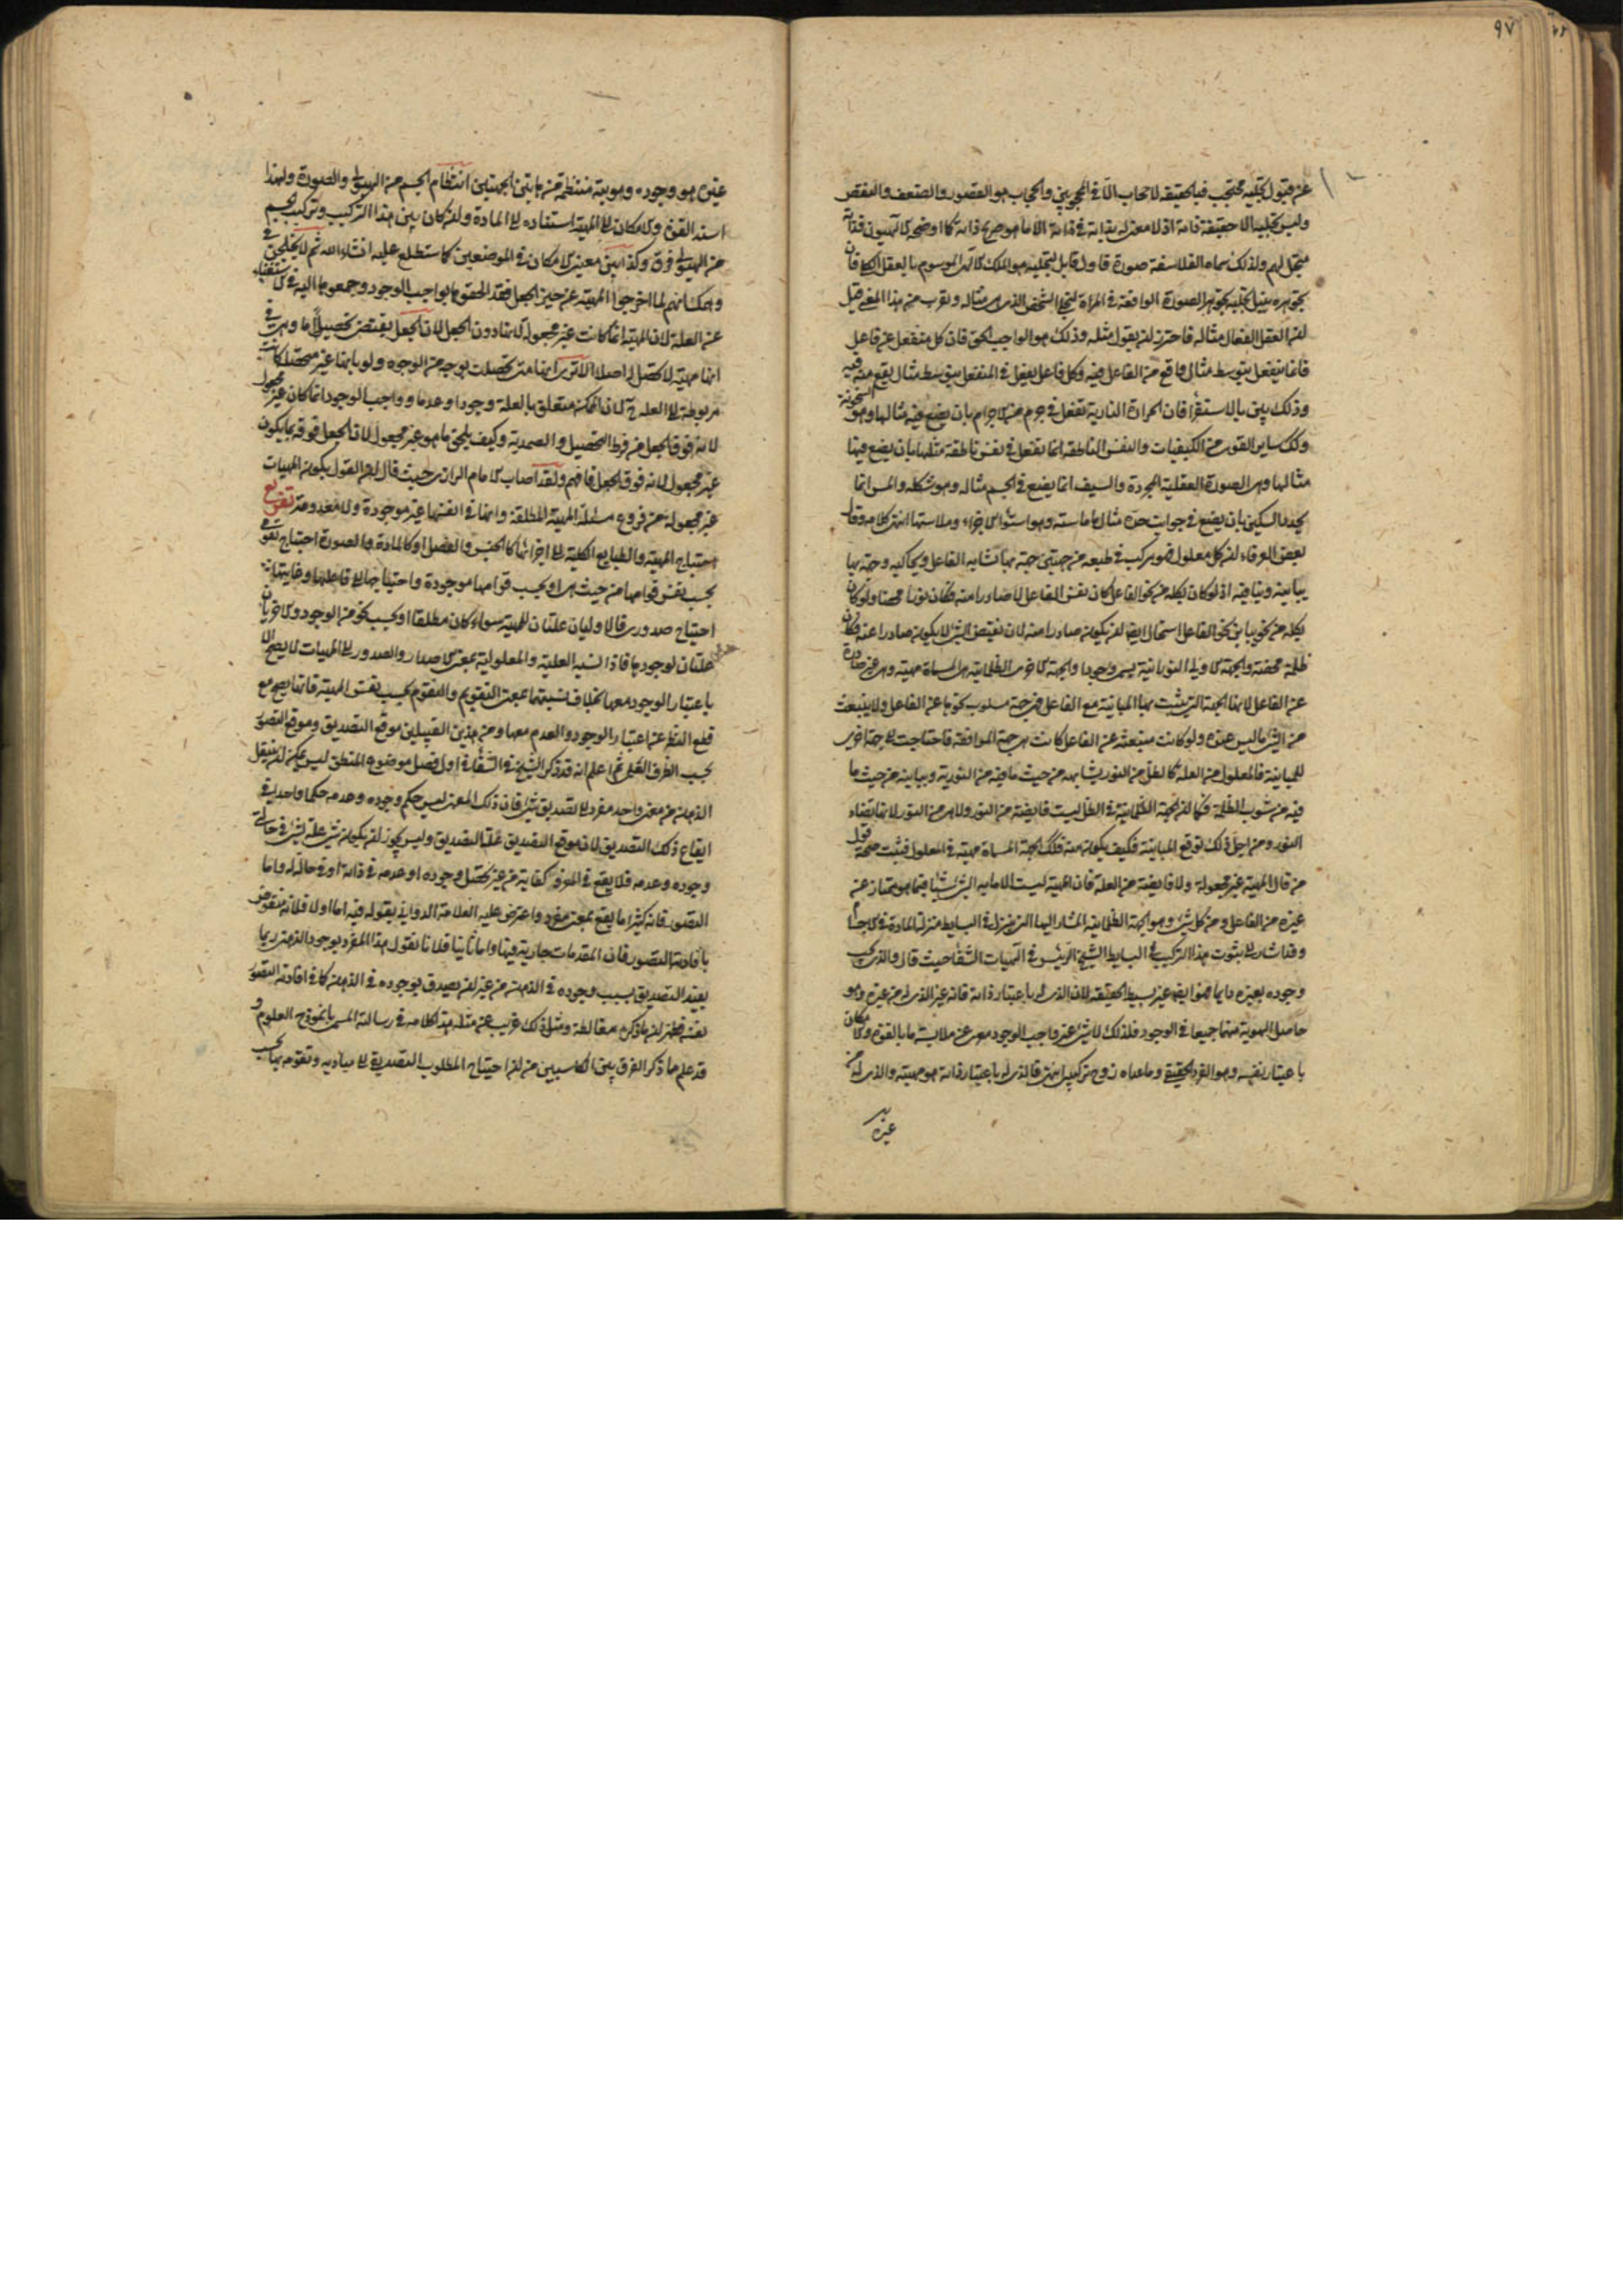 ٩٧
عن قبول تجليه محتجب فبالحقيقة لا حجاب الا في المحجوبين والحجاب هو القصور والضعف والنقص
وليس تجليه الا حقيقة ذاته اذ لا معنى له بذاته في ذاته الا ما هو صريح ذاته كما اوضحه الالهيون فذاته
متجل لهم ولذلك سماه الفلاسفة صورة فاول قابل لتجليه هو الملك الالهى الموسوم بالعقل الكلى فان
بجوهره ينيل تجليه بجوهر الصورة الواقعة في المرآة لتجلى الشخص الذى هى مثاله ولقرب من هذا المعنى قيل
ان العقل الفعال مثاله فاحترز ان يقول مثله وذلك هو الواجب الحق فان كل منفعل عن فاعل
فانما ينفعل بتوسط مثال واقع من الفاعل فيه وكل فاعل يفعل في المنفعل بتوسط مثال يقع منه فيه
وذلك بين بالاستقراء فان الحرارة النارية تفعل في جرم من الاجرام بان يضع فيه مثالها وهو السخونة
وكك ساير القوى من الكيفيات والنفس الناطقة انما تفعل في نفس ناطقة مثلها بان يضع فيها
مثالها وهى الصورة العقلية المجردة والسيف انما يضع في الجسم مثاله وهو شكله والمسن انما
يحدد السكين بان يضع في جوانب حده مثال ما ماسه وهو استواء الاجزاء وملاستها انتهى كلامه وقال
بعض العرفاء ان كل معلول فهو مركب في طبعه من جهتين جهة بها يشابه الفاعل ويحاكيه وجهة بها
يباينه وينافيه اذ لو كان بكله من نحو الفاعل كان نفس الفاعل لا صادرا منه فكان نورا محضا ولو كان
بكله من نحو يباين نحو الفاعل استحال ايضا ان يكون صادرا منه لان نقيض الشئ لا يكون صادرا عنه فكان
ظلمة محضة والجهة الاولى النورانية يسمى وجودا والجهة الاخرى الظلمانية هى المسماة مهية وهى غير صادرة
عن الفاعل لانها الجهة التى يثبت بها المباينة مع الفاعل فهى جهة مسلوب نحوها عن الفاعل ولا ينبعث
من الشئ ما ليس عنده ولو كانت منبعثة عن الفاعل كانت هى جهة الموافقة فاحتاجت الى جهة اخرى
للمباينة فالمعلول من العلة كالظل من النور يشابهه من حيث ما فيه من النورية ويباينه من حيث ما
فيه من شوب الظلمة فكما ان الجهة الظلمانية في الظل ليست فايضة من النور ولا هى من النور لانها تضاد
النور ومن اجل ذلك توقع المباينة فكيف يكون منه فكك الجهة المسماة مهية في المعلول فثبت صحة قول
من قال المهية غير مجعولة ولا فايضة من العلة فان المهية ليست الا ما به الشئ شئ فيما هو ممتاز عن
غيره من الفاعل ومن كل شئ وهو الجهة الظلمانية المشار اليها التى تنزل في البسايط منزلة المادة في الاجسام
وقد اشار الى ثبوت هذا التركيب في البسايط الشيخ الرئيس في الهيات الشفا حيث قال والذى يجب
وجوده بغيره دايما فهو ايضا غير بسيط الحقيقة لان الذى له باعتبار ذاته فانه غير الذى له من غيره وهو
حاصل الهوية منهما جميعا في الوجود فلذلك لا شئ غير واجب الوجود معرى عن ملابسة ما بالقوة والامكان
باعتبار نفسه وهو الفرد الحقيقى وما عداه زوج تركيبى انتهى فالذى له باعتبار ذاته هو مهيته والذى له من
غيره
غيره هو وجوده وهويته منتظمة من هاتين الجهتين انتظام الجسم من الهيولى والصورة ولهذا
اسند القوة والامكان الى المهية استناده الى المادة وان كان بين هذا التركيب وتركيب الجسم
من الهيولى فرق وكذا بين معنيى الامكان في الموضعين كما ستطلع عليه انشاء الله ثم لا يختلجن في
وهمك انهم لما اخرجوا المهية عن حيز الجعل فقد الحقوها بواجب الوجود وجمعوها اليه في الاستغناء
عن العلة لان المهية انما كانت غير مجعولة لانها دون الجعل لان الجعل يقتضى تحصيلا ما وهى في
انها مهية لا تحصل لها اصلا الا ترى انها متى تحصلت بوجه من الوجوه ولو بانها غير متحصلة كانت
مربوطة الى العلة ح لان الممكن متعلق بالعلة وجودا وعدما وواجب الوجود انما كان غير مجعول
لانه فوق الجعل من فرط التحصيل والصمدية وكيف يلحق ما هو غير مجعول لان الجعل فوقه بما يكون
غير مجعول لانه فوق الجعل فافهم ولقد اصاب الامام الرازى حيث قال ان القول بكون المهيات
غير مجعولة من فروع مسئلة المهية المطلقة وانها في انفسها غير موجودة ولا معدومة تفريع
احتياج المهية والطبايع الكلية الى اجزائها كالجنس والفصل او كالمادة والصورة احتياج تقومى
بحسب نفس قوامها من حيث هى او بحسب قوامها موجودة واحتياجها الى فاعلها وغايتها
احتياج صدورى فالاوليان علتان للمهية سواء كان مطلقا او بحسب نحو من الوجود والاخريان
علتان لوجودها فاذا النسبة العلية والمعلولية بمعنى الاصدار والصدور الى المهيات لا يصح الا
باعتبار الوجود معها بخلاف نسبتهما بمعنى التقويم والتقوم بحسب نفس المهية فانها يصح مع
قطع النظر عن اعتبار الوجود والعدم معها ومن هذين القبيلين موقع التصديق وموقع التصور
بحسب الظرف العلمى ثم اعلم انه قد ذكر الشيخ في الشفا في اول فصل موضوع المنطق ليس يمكن ان ينتقل
الذهن من معنى واحد مفرد الى تصديق شئ فان ذلك المعنى ليس حكم وجوده وعدمه حكما واحدا في
ايقاع ذلك التصديق لان موقع التصديق علة التصديق وليس يجوز ان يكون شئ علة لشئ في حالتى
وجوده وعدمه فلا يقع في المفرد كفاية من غير تحصيل وجوده او عدمه في ذاته او في حاله واما
التصور فانه كثيرا ما يقع بمعنى مفرد واعترض عليه العلامة الدوانى بقوله فيه اما اولا فلانه منقوض
بافادة التصور فان المقدمات جارية فيها واما ثانيا فلانا نقول هذا المفرد بوجوده الذهنى ربما
يفيد التصديق بسبب وجوده في الذهن من غير ان يصدق بوجوده في الذهن كما في افادة التصور
نفسه فظهر ان ما ذكره مغالطة ومثل ذلك غريب عن مثله هذا كلامه في رسالته المسمى بانموذج العلوم و
قد علم ما ذكر الفرق بين الكاسبين من ان احتياج المطلوب التصديقى الى مباديه وتقومه بها بحسب